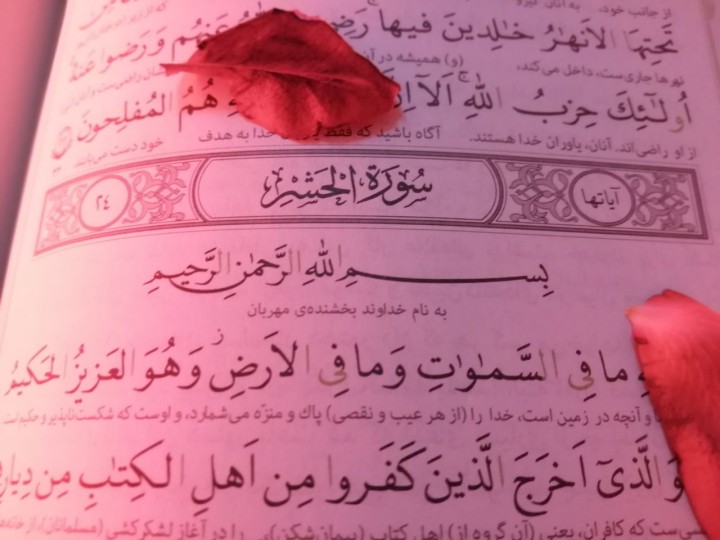 از جانب خود، به آنان
تَحتِهَا الاَنهٰرُ خٰلِدينَ فيها عَنهُم وَ رَضوا عَنهُ
نهرها جاری‌ست، داخل می‌کند، (و) همیشه در آن
اُولٰٓئِكَ حِزبُ اللّٰهِ اَلَآ هُمُ المُفلِحونَ
از او راضی‌اند. آنان، یاوران خدا هستند. آگاه باشید که فقط خدا به هدف خود دست می‌یابند
آیاتها سُورَةُ الْحَشْرِ ٢٤
بِسمِ اللّٰهِ الرَّحمٰنِ الرَّحيمِ
به نام خداوند بخشنده‌ی مهربان
ما فِی السَّمٰوٰتِ وَ ما فِی الاَرضِ وَ هُوَ العَزيزُ الحَكيمُ
و آنچه در زمین است، خدا را (از هر عیب و نقصی) پاك و منزّه می‌شمارد، و اوست که شکست‌ناپذیر و حکیم است
الَّذیٓ اَخرَجَ الَّذينَ كَفَروا مِن اَهلِ الكِتٰبِ مِن دِيارِ
که کافران، یعنی (آن گروه از) اهل کتاب (پیمان‌شکن)، را در آغاز لشکرکشی (مسلمانان)، از